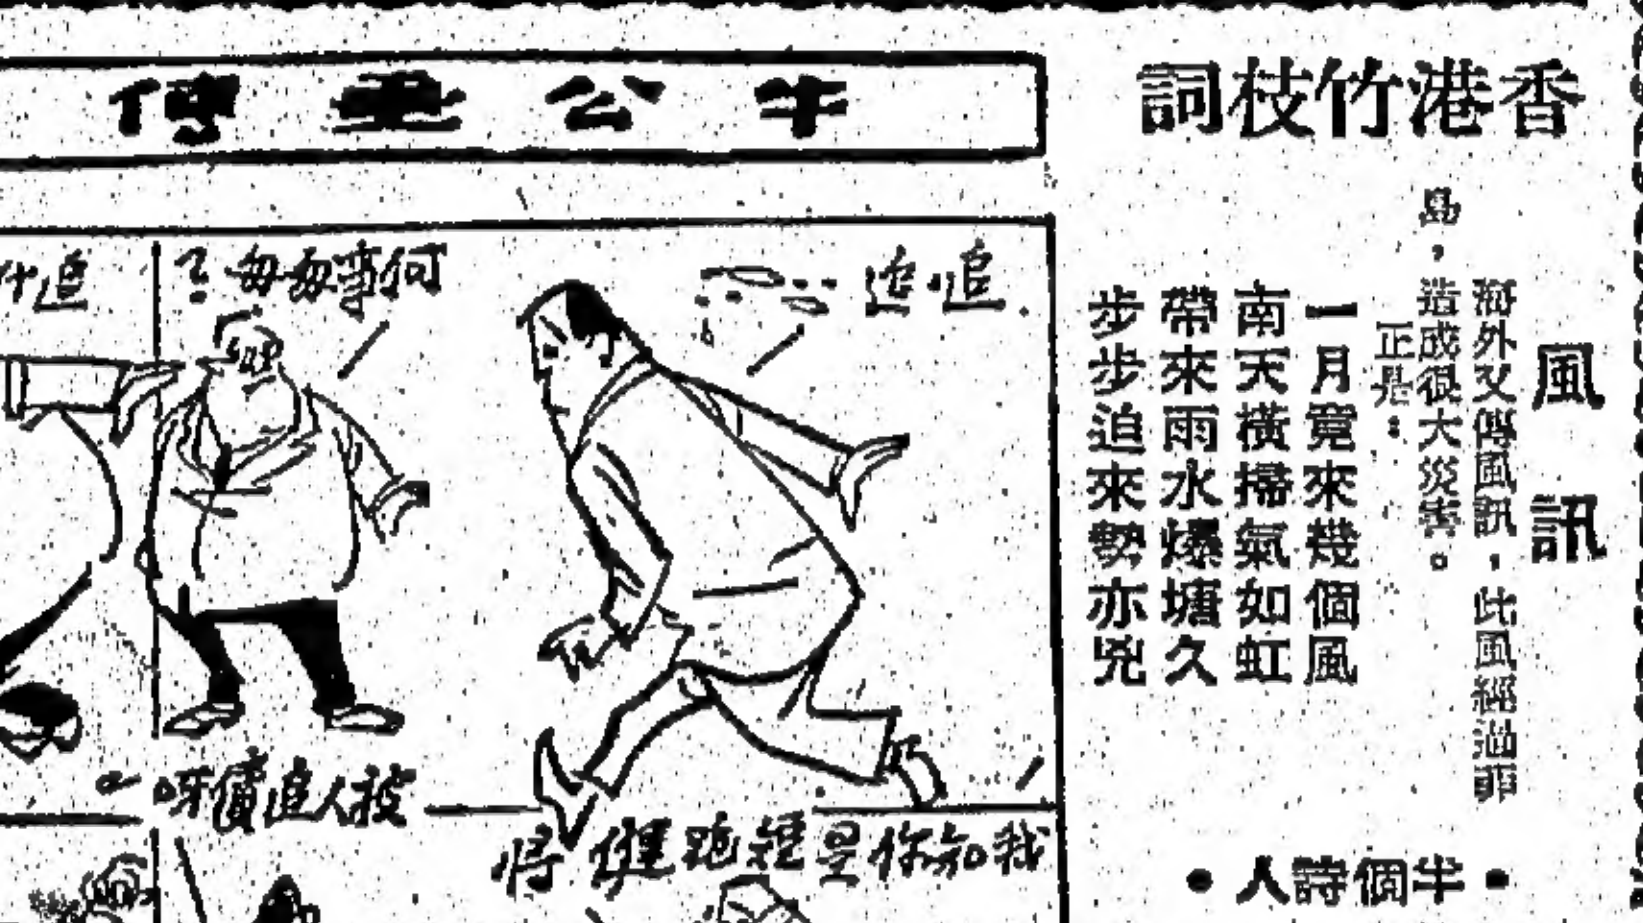 香港竹枝詞
風訊
海外又傳風訊，此風經過菲
島，造成很大災害。
正是：
一月竟來幾個風
南天橫掃氣如虹
帶來雨水爆塘久
步步迫來勢亦兇
•半個詩人•
牛公耍傳
追•追
何事匆匆？
被人追債呀
我知你是短跑健將
追什